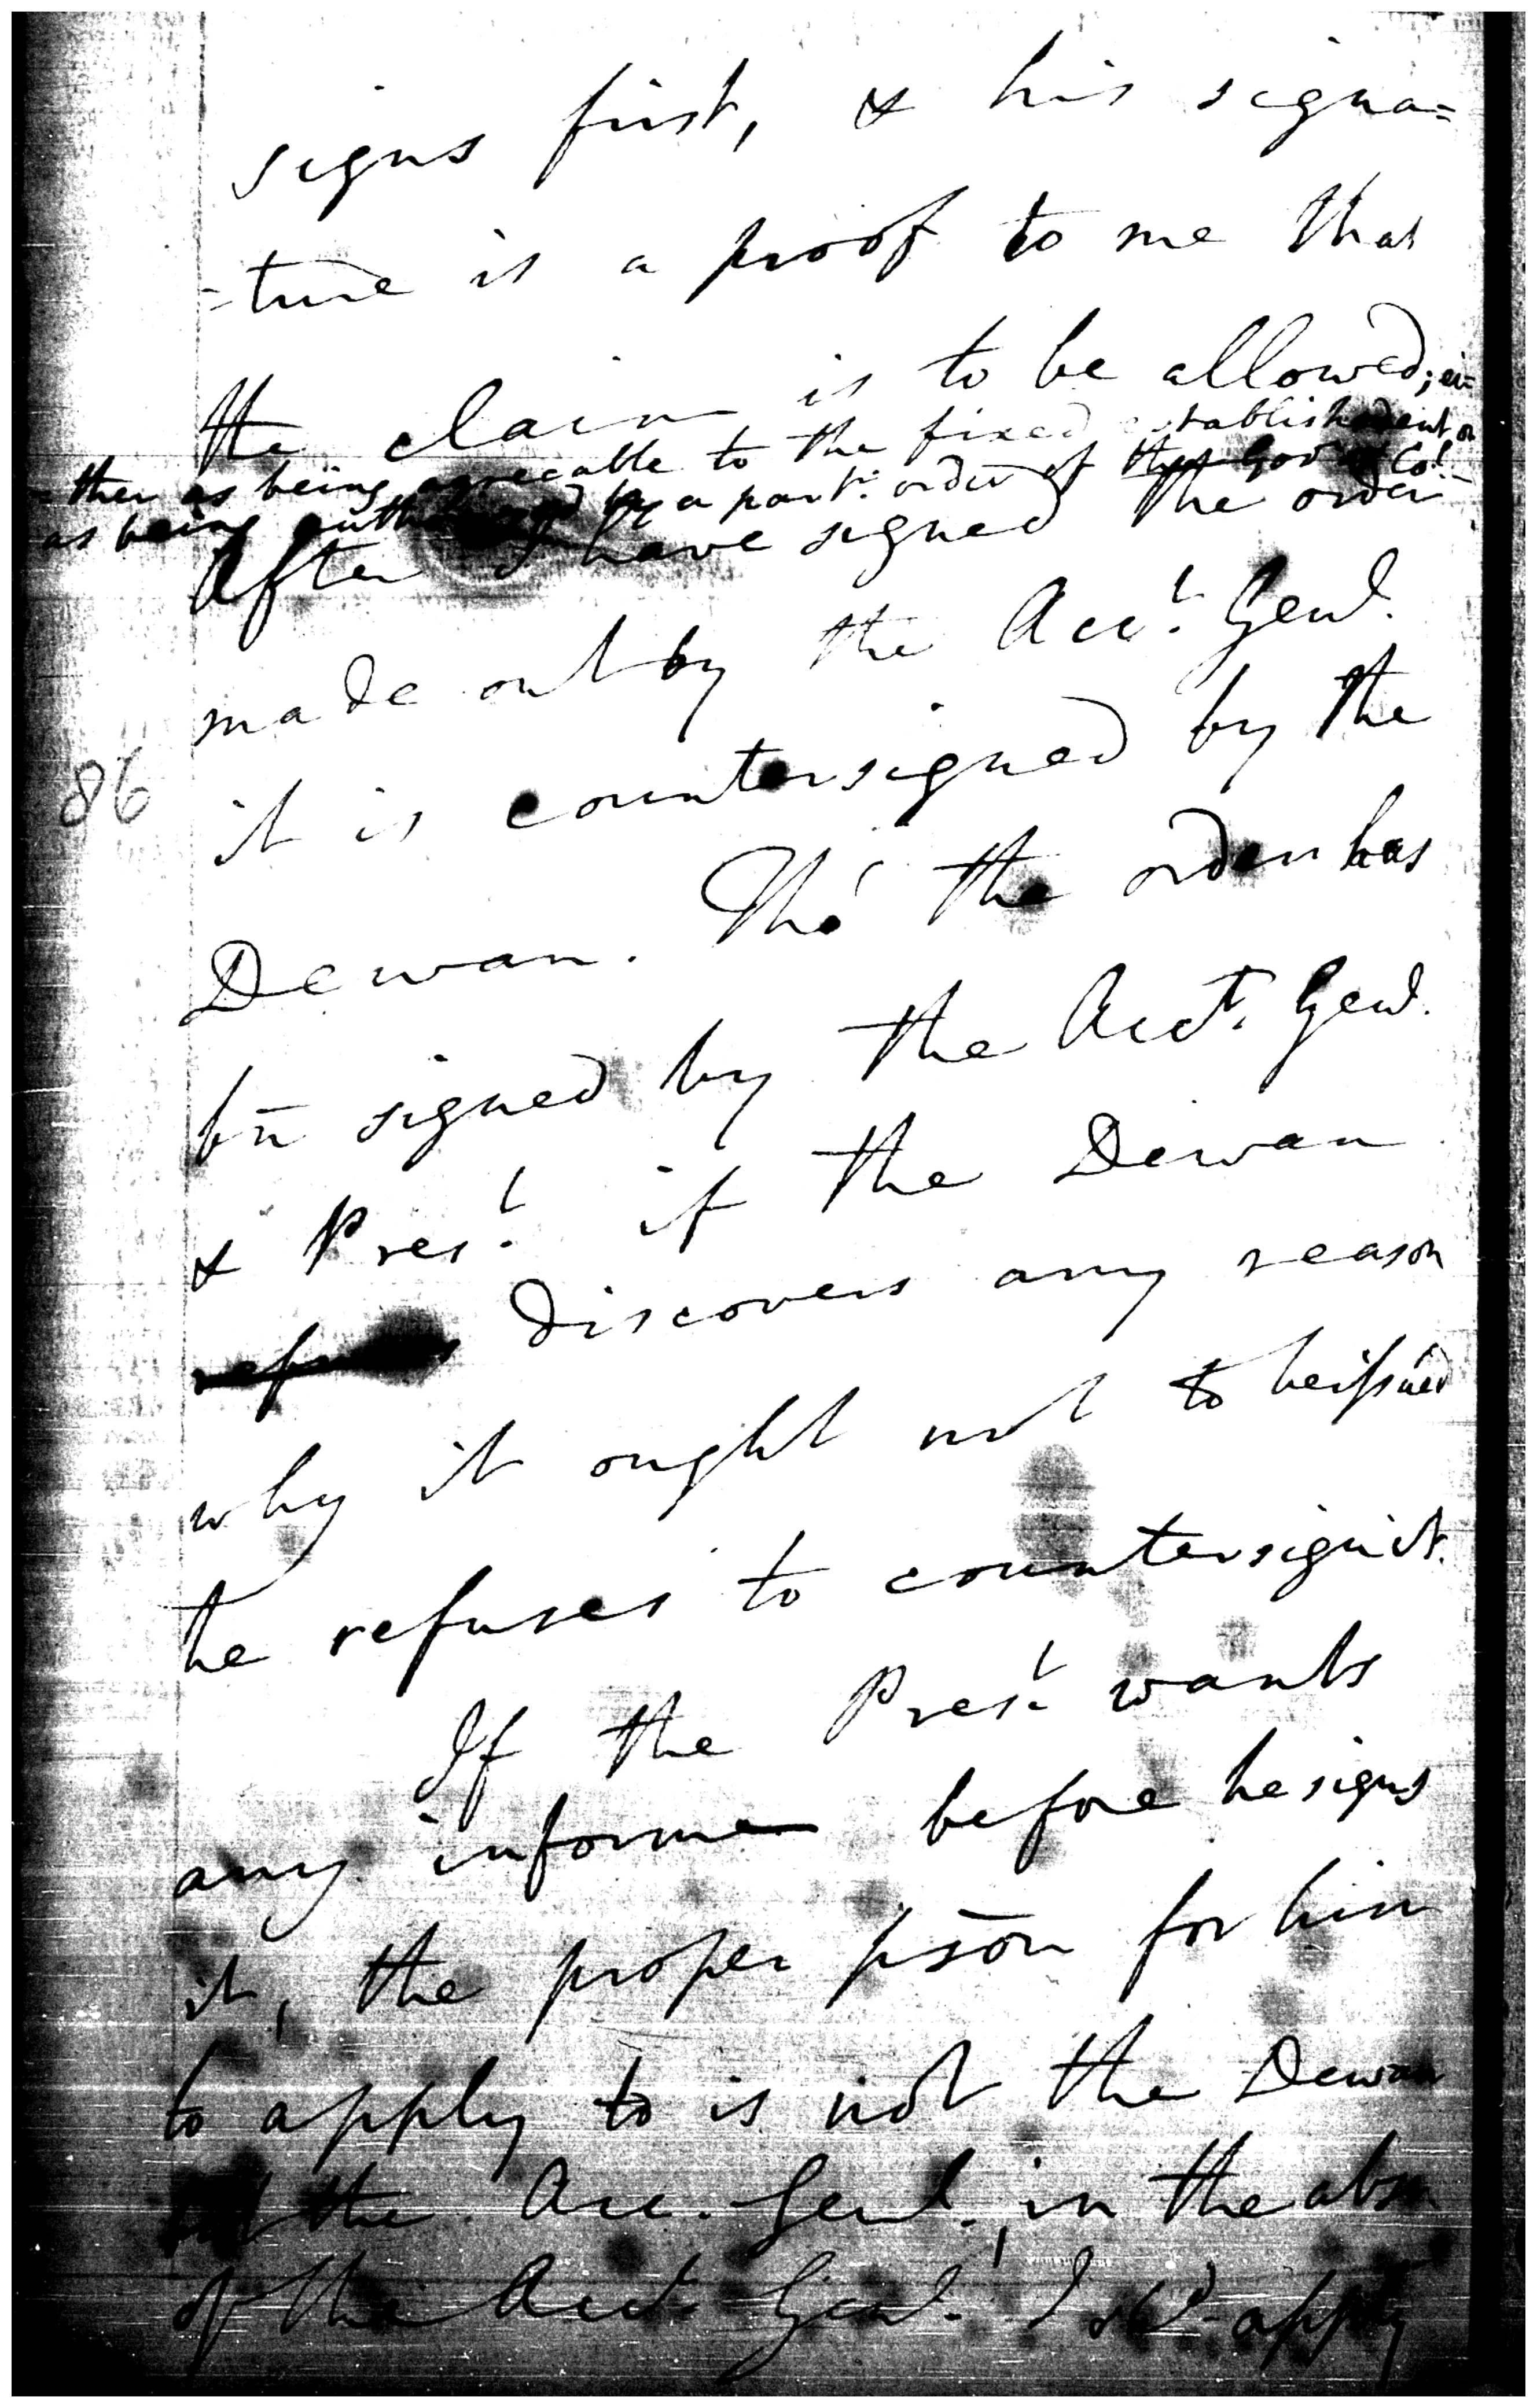 signs first, & his signa=
-ture is a proof to me that
the claim is to be allowed; ei=
=ther as being agreeable to the fixed establishment or
as being authorized by a partr. order of the Govr & Col.
After I have signed the order
made out by the Acct. Genl.
it is countersigned by the
86
Dewan. Tho' the order has
bn̄ signed by the Acct. Genl.
& Prest. if the Dewan
discovers any reason
why it ought not to be issued
he refuses to countersign it.
If the Prest. wants
any informn before he signs
it, the proper pson̄ for him
to apply to is not the Dewan
but the Acc. Genl., in the absn
of the Acct. Genl. I shd. apply